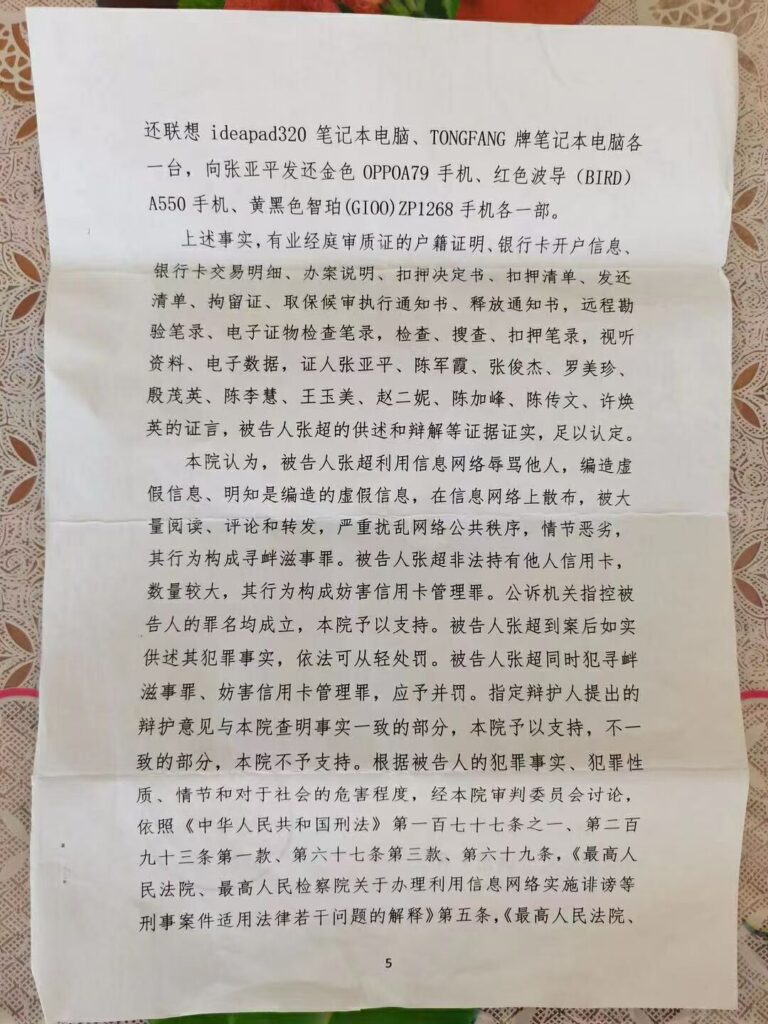 还联想 ideapad320 笔记本电脑、TONGFANG 牌笔记本电脑各
一台，向张亚平发还金色 OPPOA79 手机、红色波导（BIRD）
A550 手机、黄黑色智珀(GIOO)ZP1268 手机各一部。
上述事实，有业经庭审质证的户籍证明、银行卡开户信息、
银行卡交易明细、办案说明、扣押决定书、扣押清单、发还
清单、拘留证、取保候审执行通知书、释放通知书，远程勘
验笔录、电子证物检查笔录，检查、搜查、扣押笔录，视听
资料、电子数据，证人张亚平、陈军霞、张俊杰、罗美珍、
殷茂英、陈李慧、王玉美、赵二妮、陈加峰、陈传文、许焕
英的证言，被告人张超的供述和辩解等证据证实，足以认定。
本院认为，被告人张超利用信息网络辱骂他人，编造虚
假信息、明知是编造的虚假信息，在信息网络上散布，被大
量阅读、评论和转发，严重扰乱网络公共秩序，情节恶劣，
其行为构成寻衅滋事罪。被告人张超非法持有他人信用卡，
数量较大，其行为构成妨害信用卡管理罪。公诉机关指控被
告人的罪名均成立，本院予以支持。被告人张超到案后如实
供述其犯罪事实，依法可从轻处罚。被告人张超同时犯寻衅
滋事罪、妨害信用卡管理罪，应予并罚。指定辩护人提出的
辩护意见与本院查明事实一致的部分，本院予以支持，不一
致的部分，本院不予支持。根据被告人的犯罪事实、犯罪性
质、情节和对于社会的危害程度，经本院审判委员会讨论，
依照《中华人民共和国刑法》第一百七十七条之一、第二百
九十三条第一款、第六十七条第三款、第六十九条，《最高人
民法院、最高人民检察院关于办理利用信息网络实施诽谤等
刑事案件适用法律若干问题的解释》第五条，《最高人民法院、
5